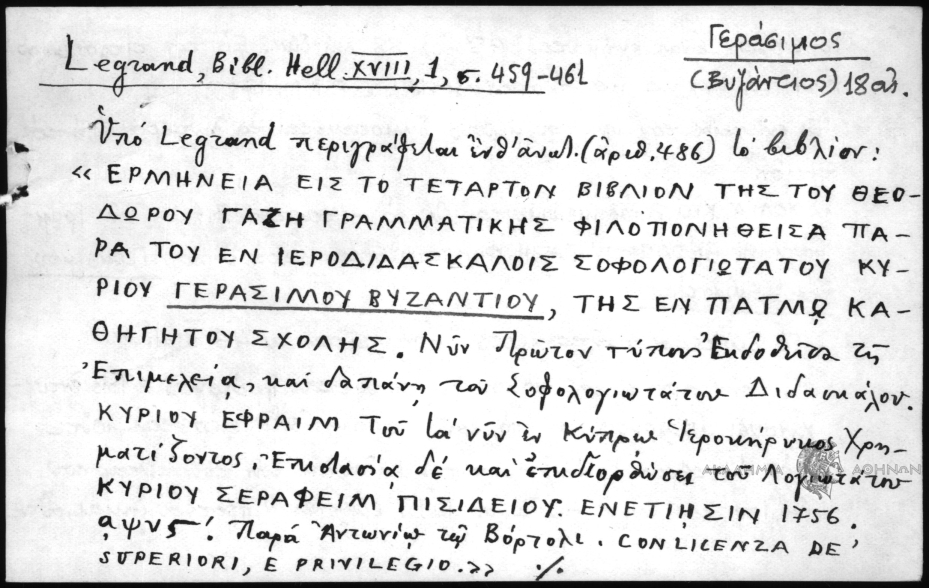 Γεράσιμος
(Βυζάντειος) 18 αἰ.
Legrand, Bibl. Hell. XVIII, 1, σ. 459-461
Ὑπό Legrand περιγράφεται ἐνθ' ἀνωτ. (ἀριθ. 486) τό βιβλίον:
« ΕΡΜΗΝΕΙΑ ΕΙΣ ΤΟ ΤΕΤΑΡΤΟΝ ΒΙΒΛΙΟΝ ΤΗΣ ΤΟΥ ΘΕΟ-
ΔΩΡΟΥ ΓΑΖΗ ΓΡΑΜΜΑΤΙΚΗΣ ΦΙΛΟΠΟΝΗΘΕΙΣΑ ΠΑ-
ΡΑ ΤΟΥ ΕΝ ΙΕΡΟΔΙΔΑΣΚΑΛΟΙΣ ΣΟΦΟΛΟΓΙΩΤΑΤΟΥ ΚΥ-
ΡΙΟΥ ΓΕΡΑΣΙΜΟΥ ΒΥΖΑΝΤΙΟΥ, ΤΗΣ ΕΝ ΠΑΤΜῼ ΚΑ-
ΘΗΓΗΤΟΥ ΣΧΟΛΗΣ. Νῦν Πρῶτον τύποις Ἐκδοθεῖσα τῇ
Ἐπιμελείᾳ, καί δαπάνῃ τοῦ Σοφολογιωτάτου Διδασκάλου.
ΚΥΡΙΟΥ ΕΦΡΑΙΜ Τοῦ τά νῦν ἐν Κύπρῳ Ἱεροκήρυκος Χρη-
ματίζοντος. Ἐπιστασίᾳ δέ καί ἐπιδιορθώσει τοῦ Λογιωτάτου
ΚΥΡΙΟΥ ΣΕΡΑΦΕΙΜ ΠΙΣΙΔΕΙΟΥ. ΕΝΕΤΙΗΣΙΝ 1756.
αψνς! Παρά Ἀντωνίῳ τῷ Βόρτολι. CON LICENZA DE'
SUPERIORI, E PRIVILEGIO.» %
ΑΚΑΔΗΜΙΑ ΑΘΗΝΩΝ